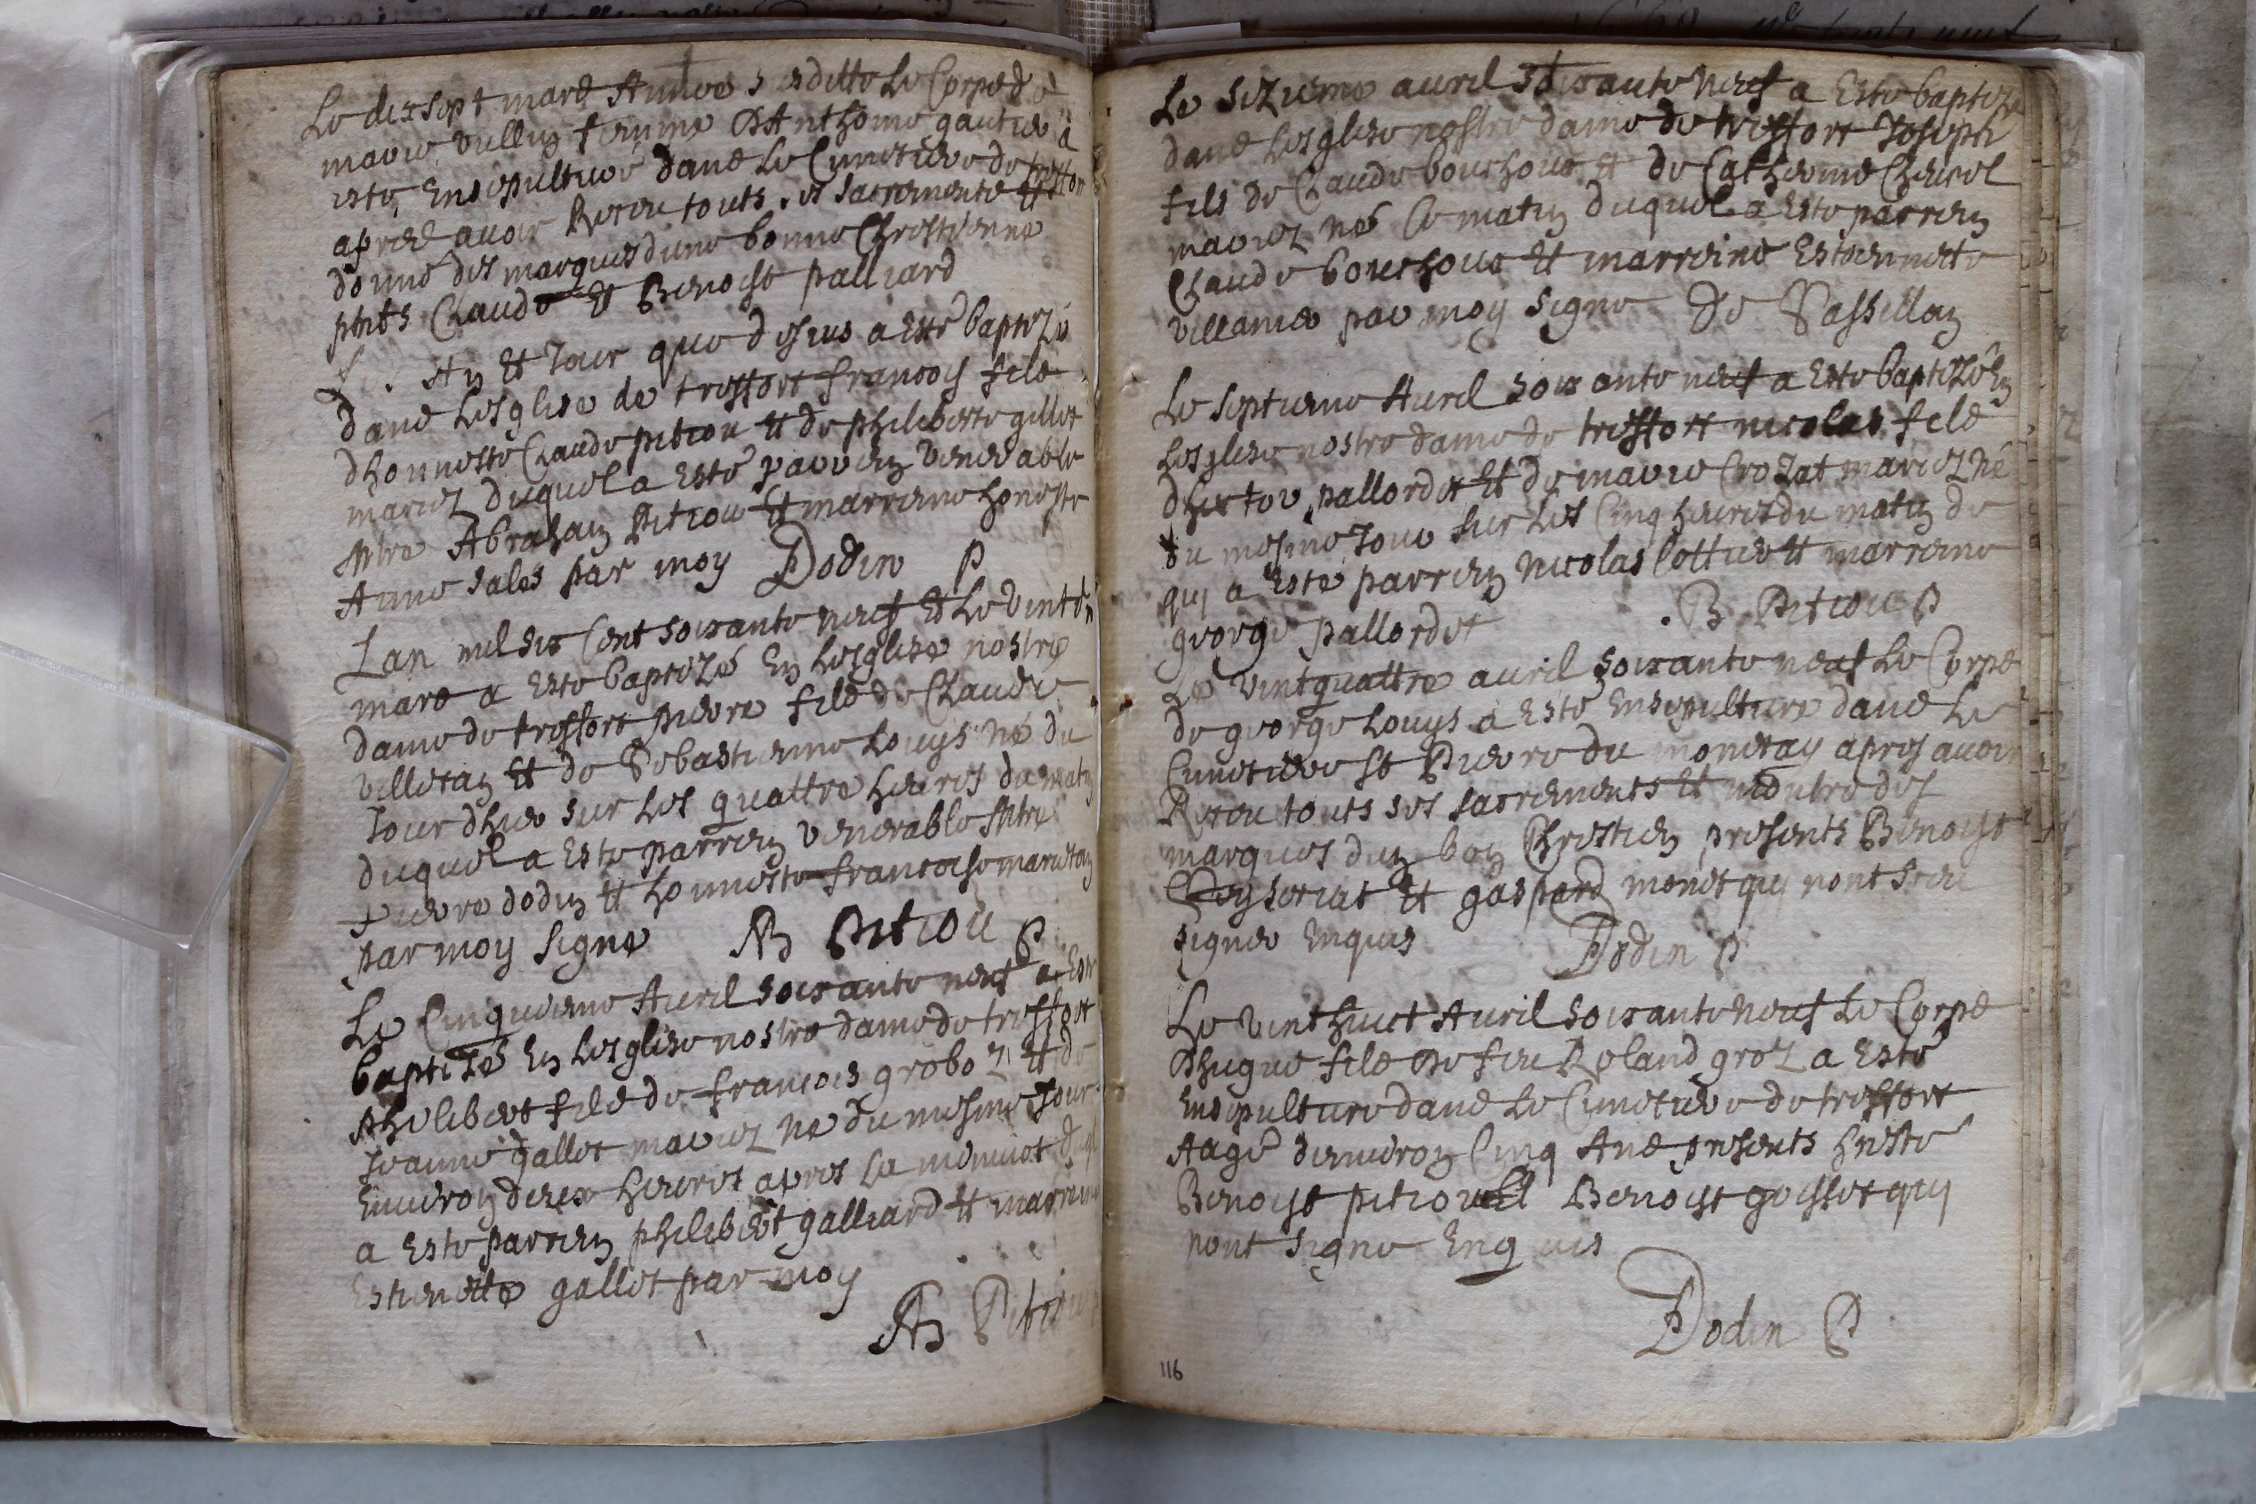 Le dixsept mars Annee susditte Le Corps de
marie vullin femme D'Anthoine gautier a
esté Ensepulturé dans Le Cimetiere de treffort
apres avoir Receu touts ses sacrements Et
donné des marques dune bonne Chrestienne
pnts Claude Et Benoist palliard
L An Et Jour que dessus a Esté baptizé
dans Lesglise de treffort francois fils
dhonneste Claude pitiou Et de philiberte gillet
mariez duquel a Esté parrein venerable
Mre Abraham Pitiou Et marreine honeste
Anne sales par moy Dodin P
Lan mil six Cent soixante neuf Et Le vint
mars a Esté baptizé En Lesglise nostre
dame de treffort pierre fils de Claude
villetan Et de Sebastienne Louys né du
Jour dhier sur Les quattre heures du matin
duquel a Esté parrein venerable Mre
pierre dodin Et honneste francoise marietan
par moy Signe AB Pitiou P
Le Cinquieme Avril soixante neuf a Esté
baptizé En Lesglise nostre dame de treffort
philibert fils de francois groboz Et de
Jeanne gallet mariez né du mesme Jour
Environ deux heures apres La minuict
a Esté parrein philibert galliard Et marreine
Estienette gallet par moy
AB Pitiou
Le sizieme avril soixante neuf a Esté baptizé
dans Lesglise nostre dame de treffort Joseph
fils de Claude bouchoux Et de Catherine Chevrel
mariez né Ce matin duquel a Esté parrein
Claude bouchoux Et marreine Estiennette
villanier par moy Signe De Vassillan
Le septieme Avril soixante neuf a Esté baptizé En
Lesglise nostre dame de treffort nicolas fils
dhector pallordet Et de marie Crozat mariez né
du mesme Jour sur Les Cinq heures du matin de
qui a Esté parrein nicolas Cottier Et marreine
george pallordet . B Pitiou P
Le vintquattre avril soixante neuf Le Corps
de george Louys a Esté Ensepulture dans Le
Cimetiere St Pierre du monetay apres avoir
Receu touts ses sacrements Et monstre des
marques dun bon Chrestien presents Benoist
Et gaspard monet qui nont sceu
signer Enquis Dodin P
Le vinthuict Avril soixante neuf Le Corps
Dhugue fils De feu Roland groz a Esté
Ensepulture dans Le Cimetiere de treffort
Aagé denviron Cinq Ans presents hneste
Benoist pitiou Et Benoist goisset qui
nont signe Enquis
Dodin P
116